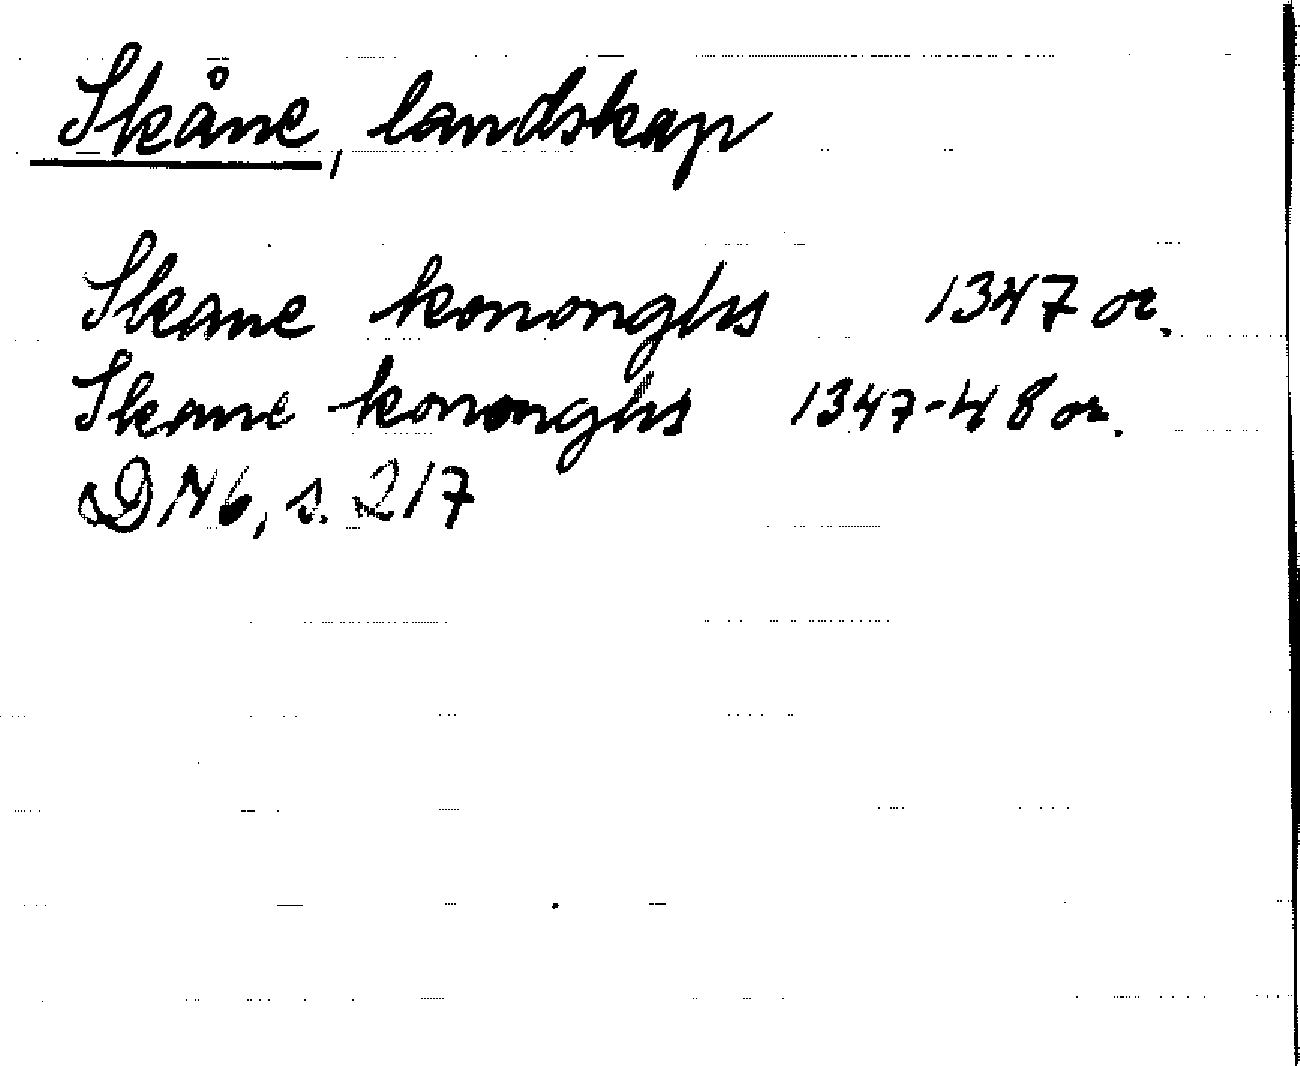 Skåne, landskap
Skane kononghs 1347 or.
Skane kononghs 1347-48 or.
DN 6, s. 217